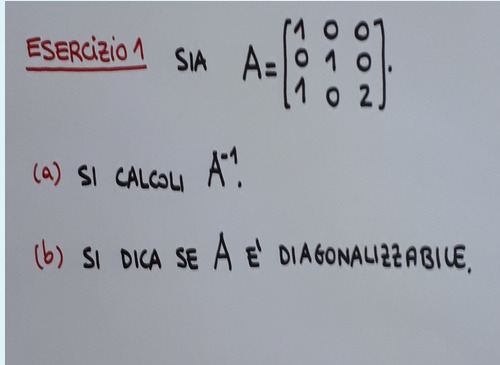 ESERCIZIO 1 SIA A = [1 0 0
0 1 0
1 0 2].
(a) SI CALCOLI A⁻¹.
(b) SI DICA SE A E' DIAGONALIZZABILE.